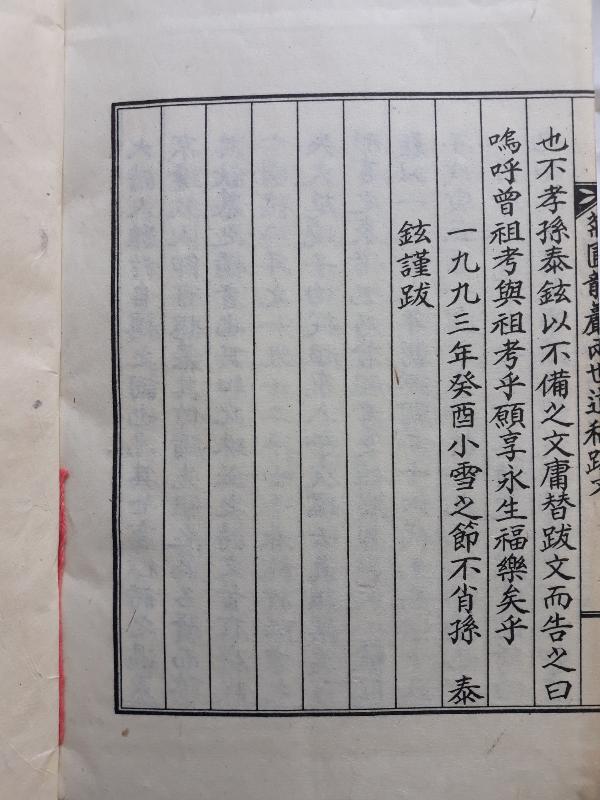 龍巖兩世遺稿跋文
也不孝孫泰鉉以不備之文庸替跋文而告之曰
嗚呼曾祖考與祖考乎願享永生福樂矣乎
一九九三年癸酉小雪之節不肖孫 泰
鉉謹跋